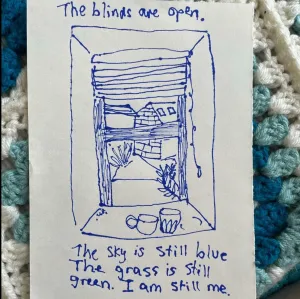 The blinds are open.
The sky is still blue
The grass is still
green. I am still me.